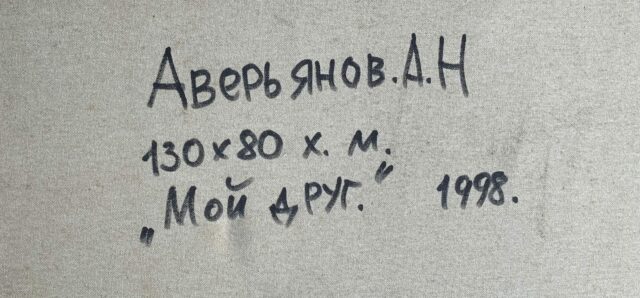 Аверьянов.А.Н
130х80 х. м.
„Мой друг.“ 1998.